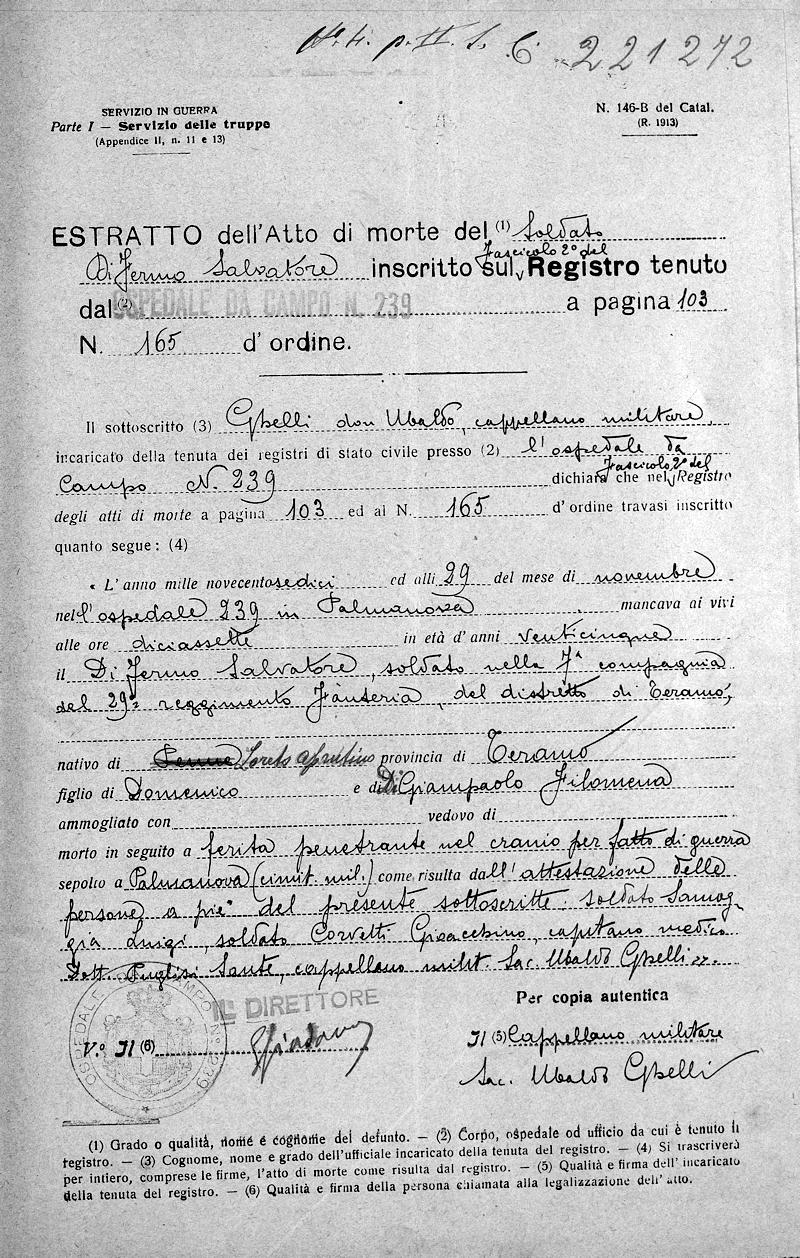 N. 4. p. II. S. C. 221272
SERVIZIO IN GUERRA
Parte I — Servizio delle truppe
(Appendice II, n. 11 e 13)
N. 146-B del Catal.
(R. 1913)
ESTRATTO dell'Atto di morte del (1) Soldato
Di Fermo Salvatore inscritto sul Fascicolo 2° del Registro tenuto
dal (2) OSPEDALE DA CAMPO N. 239 a pagina 103
N. 165 d'ordine.
Il sottoscritto (3) Ghelli don Ubaldo, cappellano militare,
incaricato della tenuta dei registri di stato civile presso (2) l'ospedale da
Campo N. 239 dichiara che nel Fascicolo 2° del Registro
degli atti di morte a pagina 103 ed al N. 165 d'ordine travasi inscritto
quanto segue: (4)
« L'anno mille novecentosedici ed alli 29 del mese di novembre
nell'ospedale 239 in Palmanova mancava ai vivi
alle ore diciassette in età d'anni venticinque
il Di Fermo Salvatore, soldato nella 7ª compagnia
del 29° reggimento Fanteria, del distretto di Teramo,
nativo di Penne Loreto Aprutino provincia di Teramo
figlio di Domenico e di Di Giampaolo Filomena
ammogliato con vedovo di
morto in seguito a ferita penetrante nel cranio per fatto di guerra
sepolto a Palmanova (cimit. mil.) come risulta dall'attestazione delle
persone a piè del presente sottoscritte: soldato Samog-
gia Luigi, soldato Corvetti Gioacchino, capitano medico
Dott. Puglisi Sante, cappellano milit. Sac. Ubaldo Ghelli ».
IL DIRETTORE
Per copia autentica
OSPEDALE DA CAMPO N° 239
V.° Il (6)
Il (5) Cappellano militare
Sac. Ubaldo Ghelli
(1) Grado o qualità, nome e cognome del defunto. — (2) Corpo, ospedale od ufficio da cui è tenuto il
registro. — (3) Cognome, nome e grado dell'ufficiale incaricato della tenuta del registro. — (4) Si trascriverà
per intiero, comprese le firme, l'atto di morte come risulta dal registro. — (5) Qualità e firma dell'incaricato
della tenuta del registro. — (6) Qualità e firma della persona chiamata alla legalizzazione dell'atto.